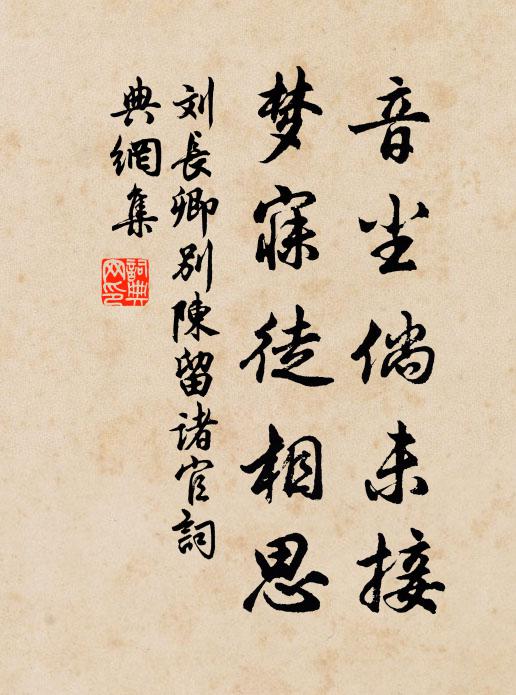 音尘倘未接
梦寐徒相思
刘長卿别陳留諸官詞
典網集
詞典
网印